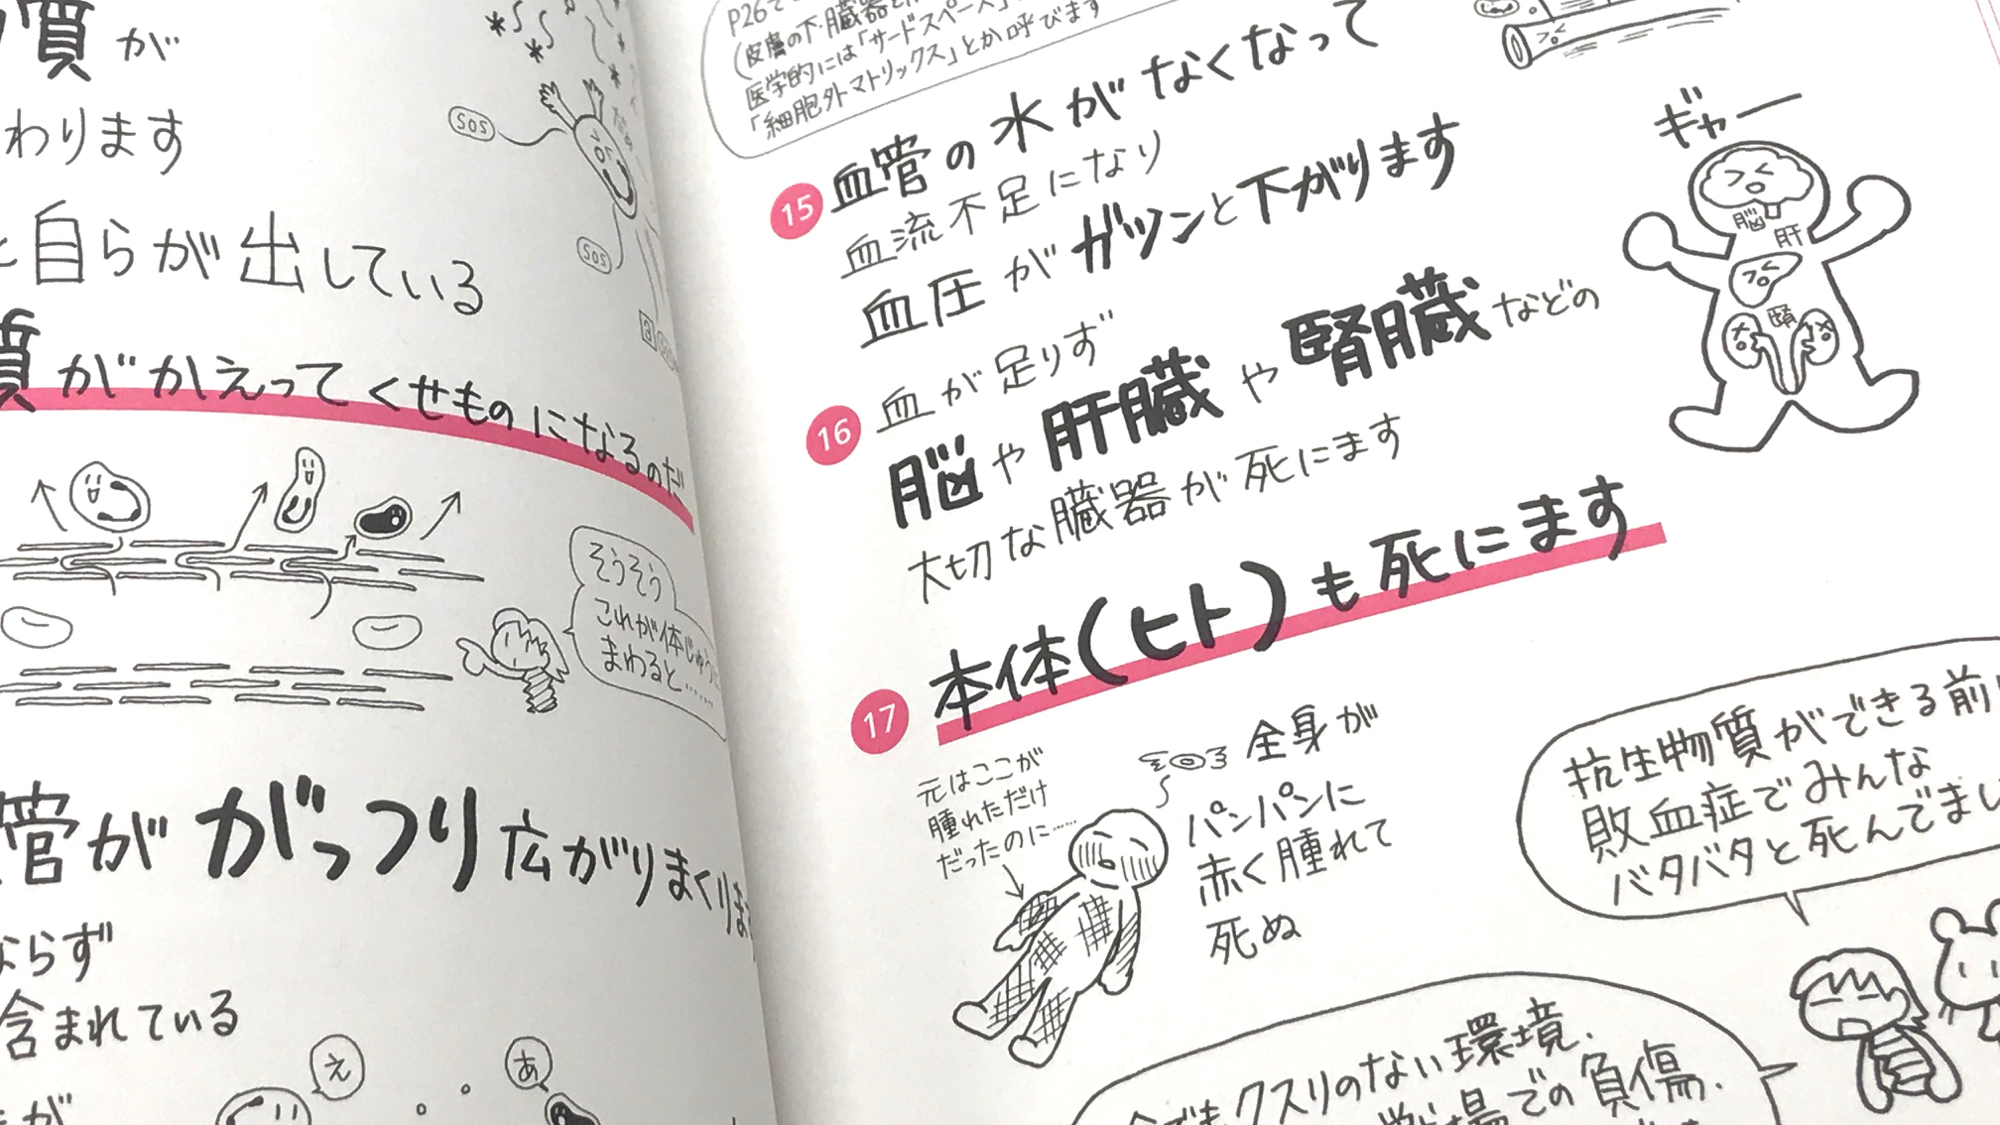 質が
わります
と自らが出している
質がかえってくせものになるのだ
SOS
SOS
そうそう
これが体じゅうに
まわると……
管ががっつり広がりまくります
ならず
含まれている
が
え
あ
P26で
医学的には「サードスペース」
「細胞外マトリックス」とか呼びます
15 血管の水がなくなって
血流不足になり
血圧がガツンと下がります
血が足りず
16 脳や肝臓や腎臓などの
大切な臓器が死にます
17 本体(ヒト)も死にます
ギャー
脳
肝
腎
元はここが
腫れただけ
だったのに……
全身が
パンパンに
赤く腫れて
死ぬ
抗生物質ができる前は
敗血症でみんな
バタバタと死んでまし
クスリのない環境、
戦場での負傷、